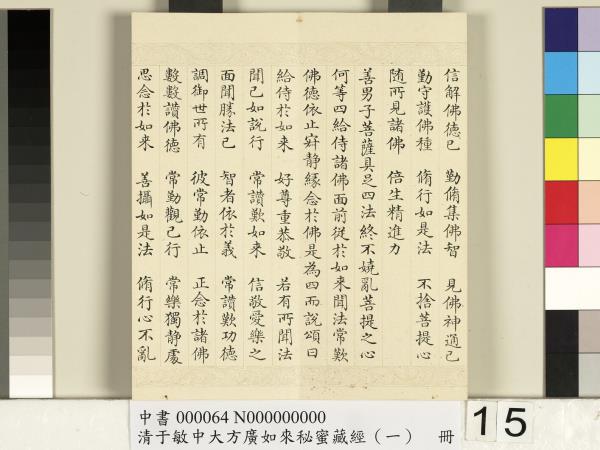 信解佛德已　勤脩集佛智　見佛神通已
勤守護佛種　脩行如是法　不捨菩提心
随所見諸佛　倍生精進力
善男子菩薩具足四法終不嬈亂菩提之心
何等四給侍諸佛面前從於如來聞法常歎
佛德依止寂静緣念於佛是為四而說頌曰
給侍於如來　好尊重恭敬　若有所聞法
聞已如說行　常讚歎如來　信敬愛樂之
面聞勝法已　智者依於義　常讚歎功德
調御世所有　彼常勤依止　正念於諸佛
數數讚佛德　常勤觀已行　常樂獨静處
思念於如來　善攝如是法　脩行心不亂
中書 000064 N000000000
清于敏中大方廣如來秘蜜藏經（一）　冊
15